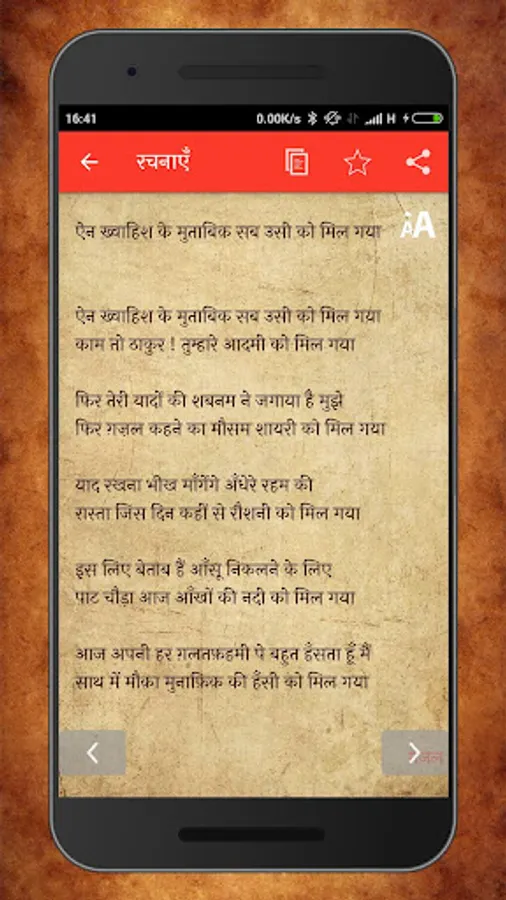 16:41
0.00K/s
H
रचनाएँ
AA
ऐन ख्वाहिश के मुताबिक़ सब उसी को मिल गया
ऐन ख्वाहिश के मुताबिक़ सब उसी को मिल गया
काम तो ठाकुर ! तुम्हारे आदमी को मिल गया
फिर तेरी यादों की शबनम ने जगाया है मुझे
फिर ग़ज़ल कहने का मौसम शायरी को मिल गया
याद रखना भीख माँगेंगे अँधेरे रहम की
रास्ता जिस दिन कहीं से रौशनी को मिल गया
इस लिए बेताब हैं आँसू निकलने के लिए
पाट चौड़ा आज आँखों की नदी को मिल गया
आज अपनी हर ग़लतफ़हमी पे बहुत हँसता हूँ मैं
साथ में मौका मुनाफ़िक़ की हँसी को मिल गया